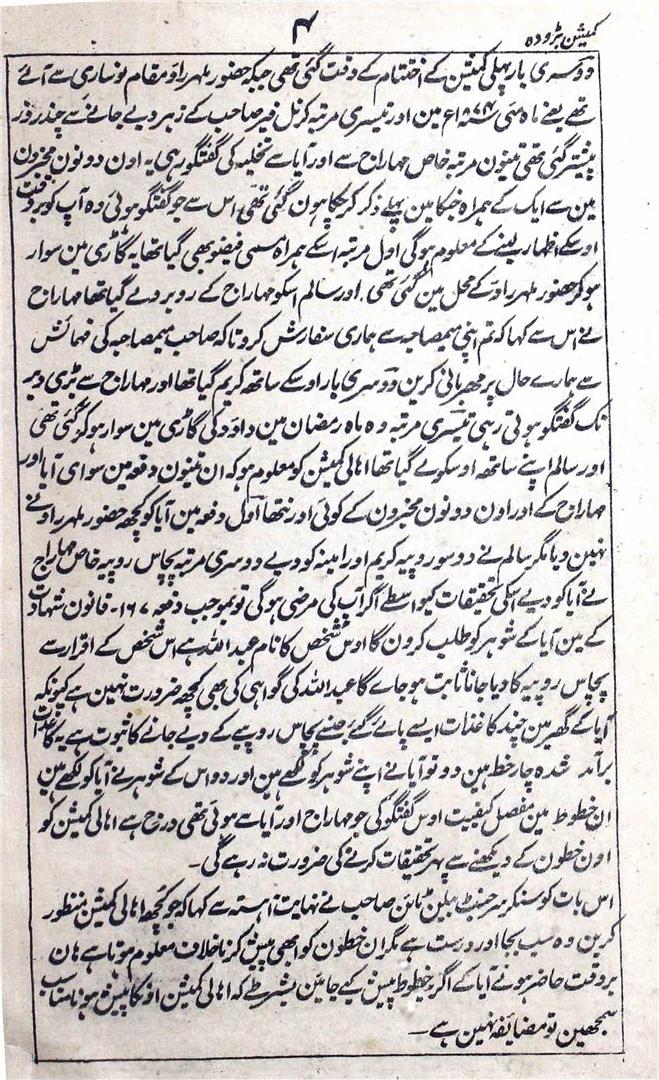 ۴
کمیشن بڑودہ
دوسری بار پہلی کمیشن کے اختتام کے وقت گئی تھی جبکہ حضور ملہر راؤ مقام نوساری سے آئے
تھے یعنے ماہ مئی ۱۸۷۴ع مین اور تیسری مرتبہ کرنل فیر صاحب کے زہر دیے جانے سے چند روز
پیشتر گئی تھی تینون مرتبہ خاص مہاراج سے اور آیا سے تخلیہ کی گفتگو رہی یہ اون دونون مخبرون
مین سے ایک کے ہمراہ جنکا مین پہلے ذکر کرچکا ہون گئی تھی اس سے جو گفتگو ہوئی وہ آپ کو بروقت
اوسکے اظہار لینے کے معلوم ہوگی اول مرتبہ اسکے ہمراہ مسمی فیضو بھی گیا تھا یہ گاڑی مین سوار
ہوکر حضور ملہر راؤ کے محل مین گئی تھی اور سالم اسکو مہاراج کے روبرو لے گیا تھا مہاراج
نے اس سے کہا کہ تم اپنی میمصاحبہ سے ہماری سفارش کرو تاکہ صاحب میمصاحبہ کی فہمائش
سے ہمارے حال پر مہربانی کرین دوسری بار اوسکے ساتھ کریم گیا تھا اور مہاراج سے بڑی دیر
تک گفتگو ہوتی رہی تیسری مرتبہ وہ ماہ رمضان مین داؤد کی گاڑی مین سوار ہوکر گئی تھی
اور سالم اپنے ساتھ اوسکو لے گیا تھا اہالی کمیشن کو معلوم ہو کہ ان تینون دفعون مین سوای آیا اور
مہاراج کے اور اون دونون مخبرون کے کوئی اور نتھا اول دفعہ مین آیا کو کچھ حضور ملہر راؤ نے
نہین دیا مگر سالم نے دوسو روپیہ کریم اور امینہ کو دیے دوسری مرتبہ پچاس روپیہ خاص مہاراج
نے آیا کو دیے اسکی تحقیقات کیواسطے اگر آپ کی مرضی ہوگی تو بموجب دفعہ ۱۶۷۔ قانون شہادت
کے مین آیا کے شوہر کو طلب کرون گا اوس شخص کا نام عبداللہ ہے اس شخص کے اقرار سے
پچاس روپیہ کا دیا جانا ثابت ہوجاے گا عبداللہ کی گواہی کی بھی کچھ ضرورت نہین ہے کیونکہ
آیا کے گھر مین چند کاغذات ایسے پائے گئے جنسے پچاس روپیے کے دیے جانے کا ثبوت ہے یہ کاغذات
برآمد شدہ چار خط ہین دو تو آیا نے اپنے شوہر کو لکھے ہین اور دو اس کے شوہر نے آیا کو لکھے ہین
ان خطوط مین مفصل کیفیت اوس گفتگو کی جو مہاراج اور آیا سے ہوئی تھی درج ہے اہالی کمیشن کو
اون خطون کے دیکھنے سے پھر تحقیقات کرنے کی ضرورت نہ رہے گی۔
اس بات کو سنکر سرجنٹ بیلن ٹائن صاحب نے نہایت آہستہ سے کہا کہ جو کچھ اہالی کمیشن منظور
کرین وہ سب بجا اور درست ہے مگر ان خطون کو ابھی پیش کرنا خلاف معلوم ہوتا ہے ہان
بروقت حاضر ہونے آیا کے اگر یہ خطوط پیش کیے جائین بشرطے کہ اہالی کمیشن اونکا پیش ہونا مناسب
سمجھین تو مضائقہ نہین ہے۔